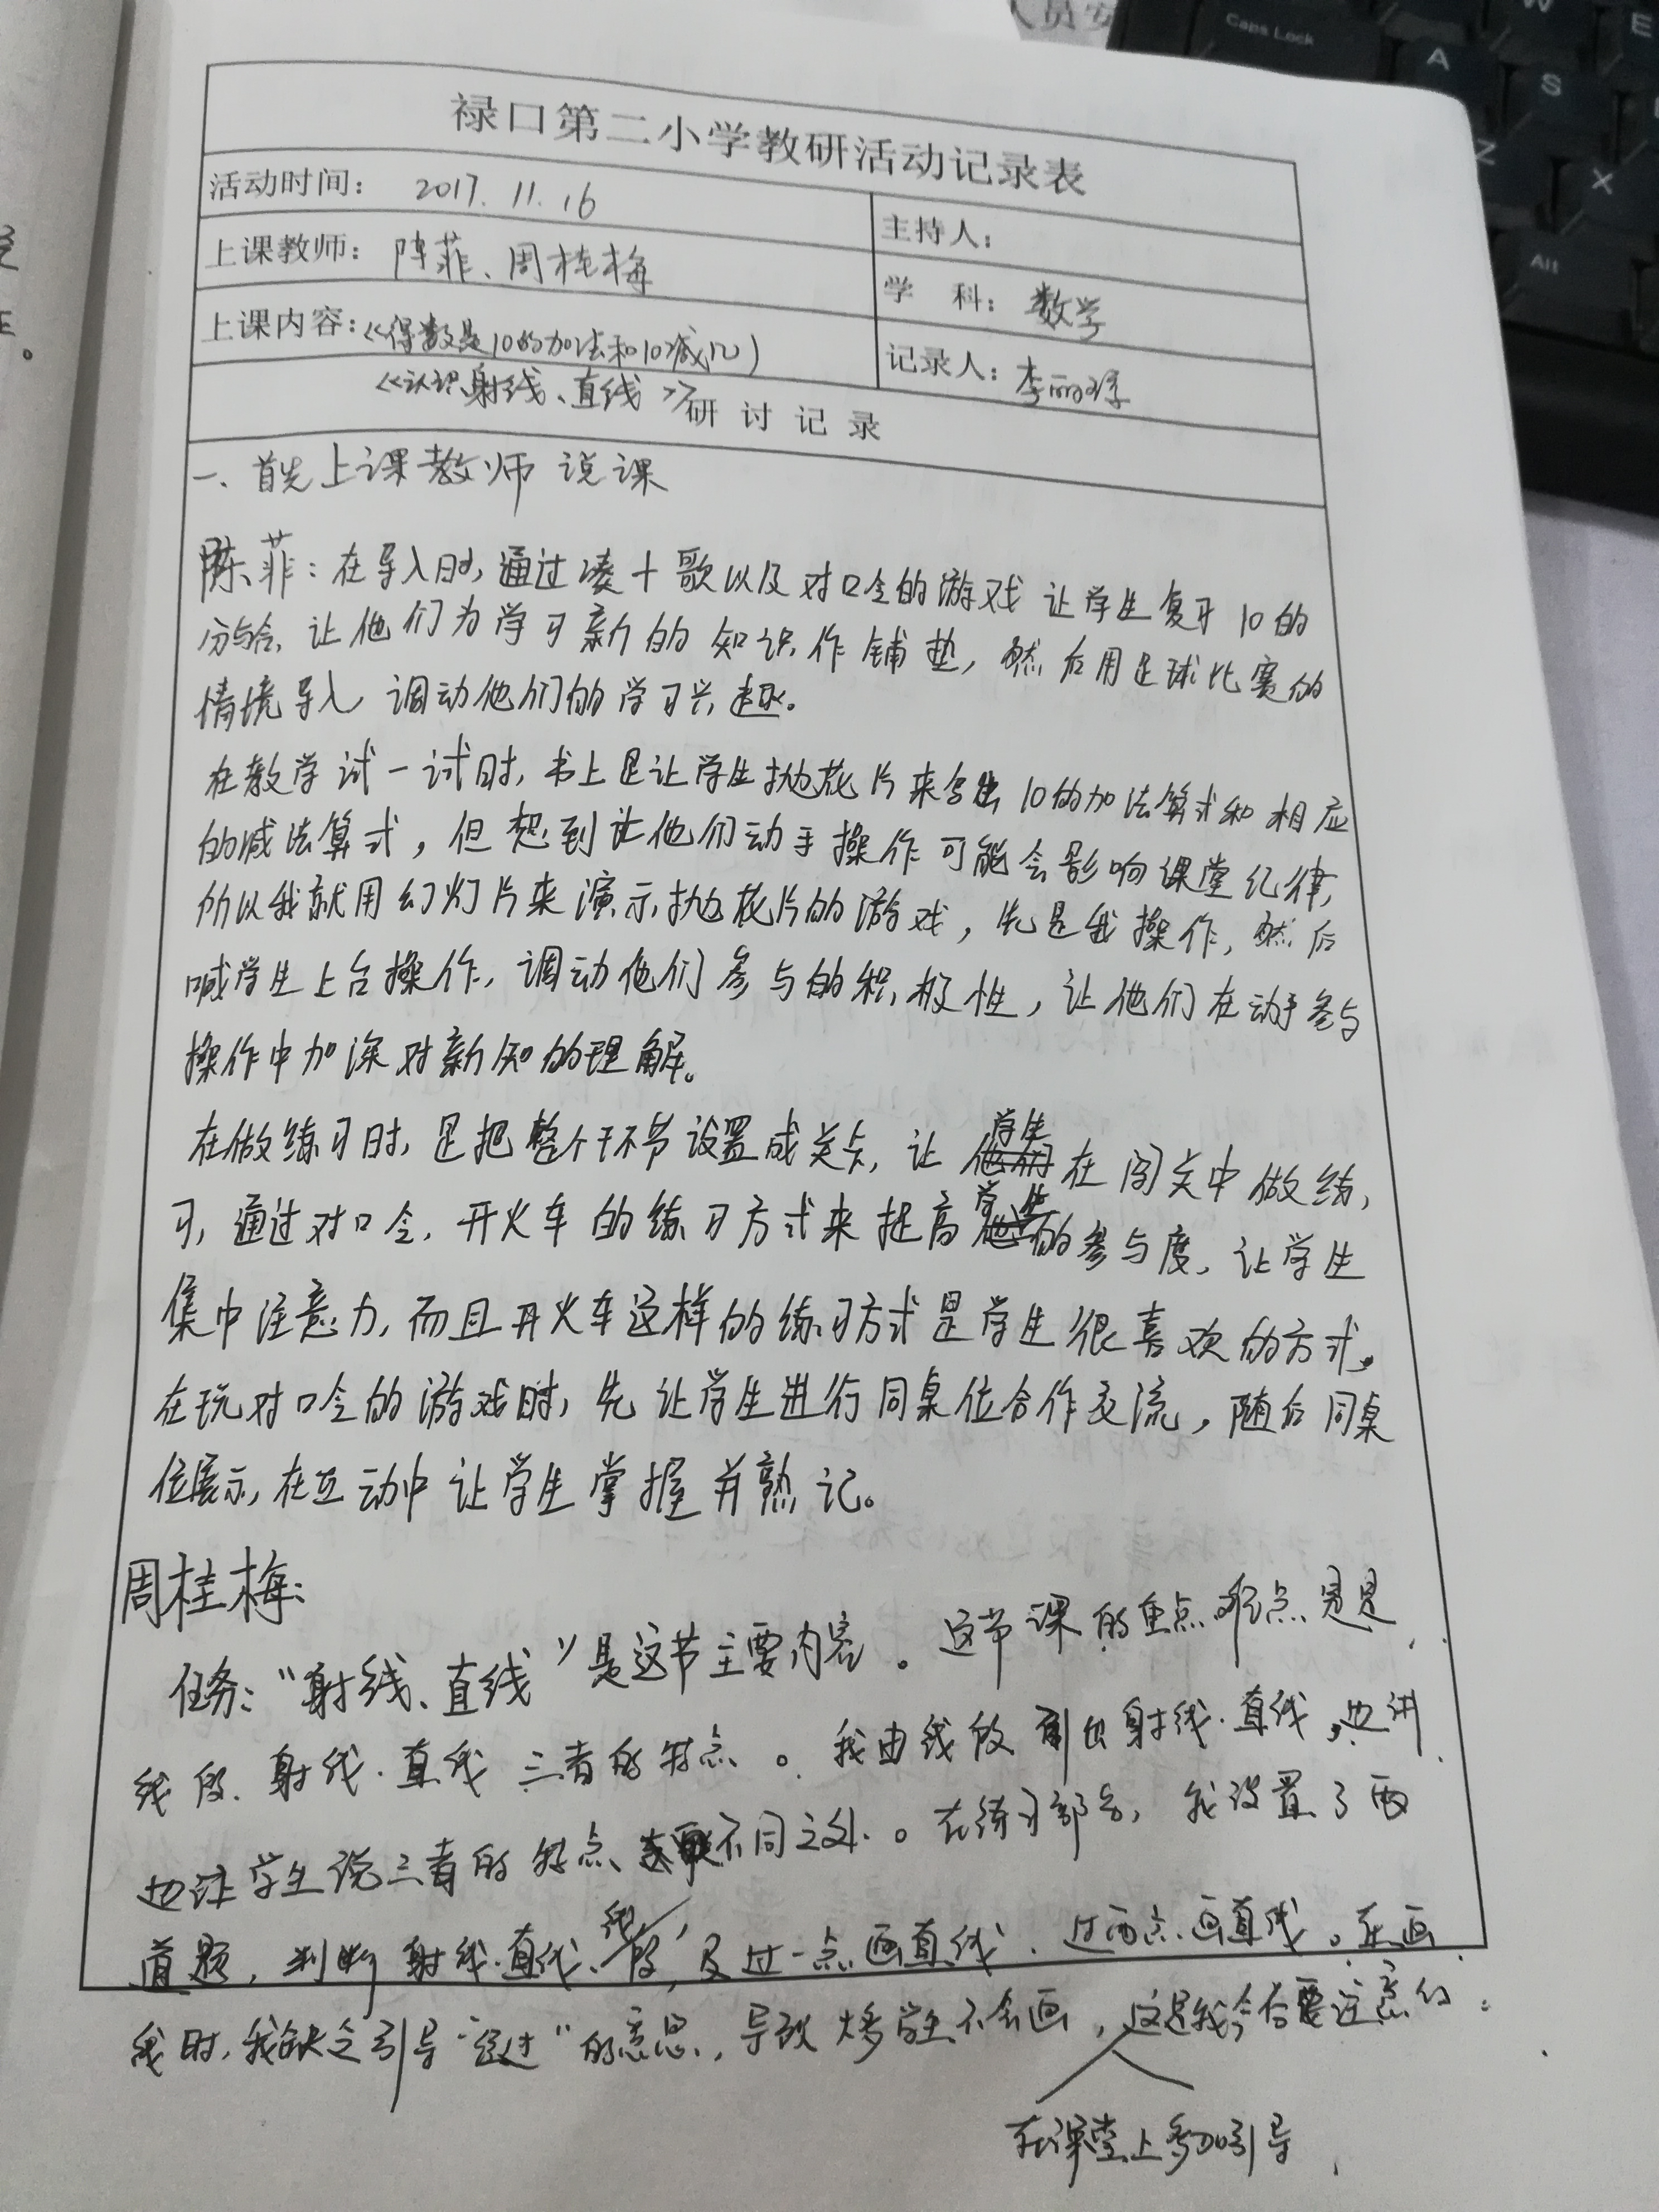 人员安
Caps Lock
A
S
W
E
Z
X
Alt
禄口第二小学教研活动记录表
活动时间： 2017.11.16
主持人：
上课教师： 陈菲、周桂梅
学 科： 数学
上课内容：《得数是10的加法和10减几》
《认识射线、直线》
记录人： 李丽
研 讨 记 录
一、首先上课教师说课
陈菲：在导入时，通过凑十歌以及对口令的游戏让学生复习10的
分与合，让他们为学习新的知识作铺垫，然后用足球比赛的
情境导入调动他们的学习兴趣。
在教学试一试时，书上是让学生抛花片来写出10的加法算式和相应
的减法算式，但想到让他们动手操作可能会影响课堂纪律，
所以我就用幻灯片来演示抛花片的游戏，先是我操作，然后
喊学生上台操作，调动他们参与的积极性，让他们在动手参与
操作中加深对新知的理解。
在做练习时，是把整个环节设置成关卡，让学生在闯关中做练
习，通过对口令，开火车的练习方式来提高学生的参与度，让学生
集中注意力，而且开火车这样的练习方式是学生很喜欢的方式。
在玩对口令的游戏时，先让学生进行同桌位合作交流，随后同桌
位展示，在互动中让学生掌握并熟记。
周桂梅：
任务：“射线、直线”是这节主要内容。这节课的重点难点是
线段、射线、直线三者的特点。我由线段引出射线、直线，边讲
边让学生说三者的特点、不同之处。在练习部分，我设置了两
道题，判断射线、直线、线段，及过一点画直线、过两点画直线。在画
线时，我缺乏引导“经过”的意思，导致大多学生不会画，这是我今后要注意的。
在课堂上多加引导